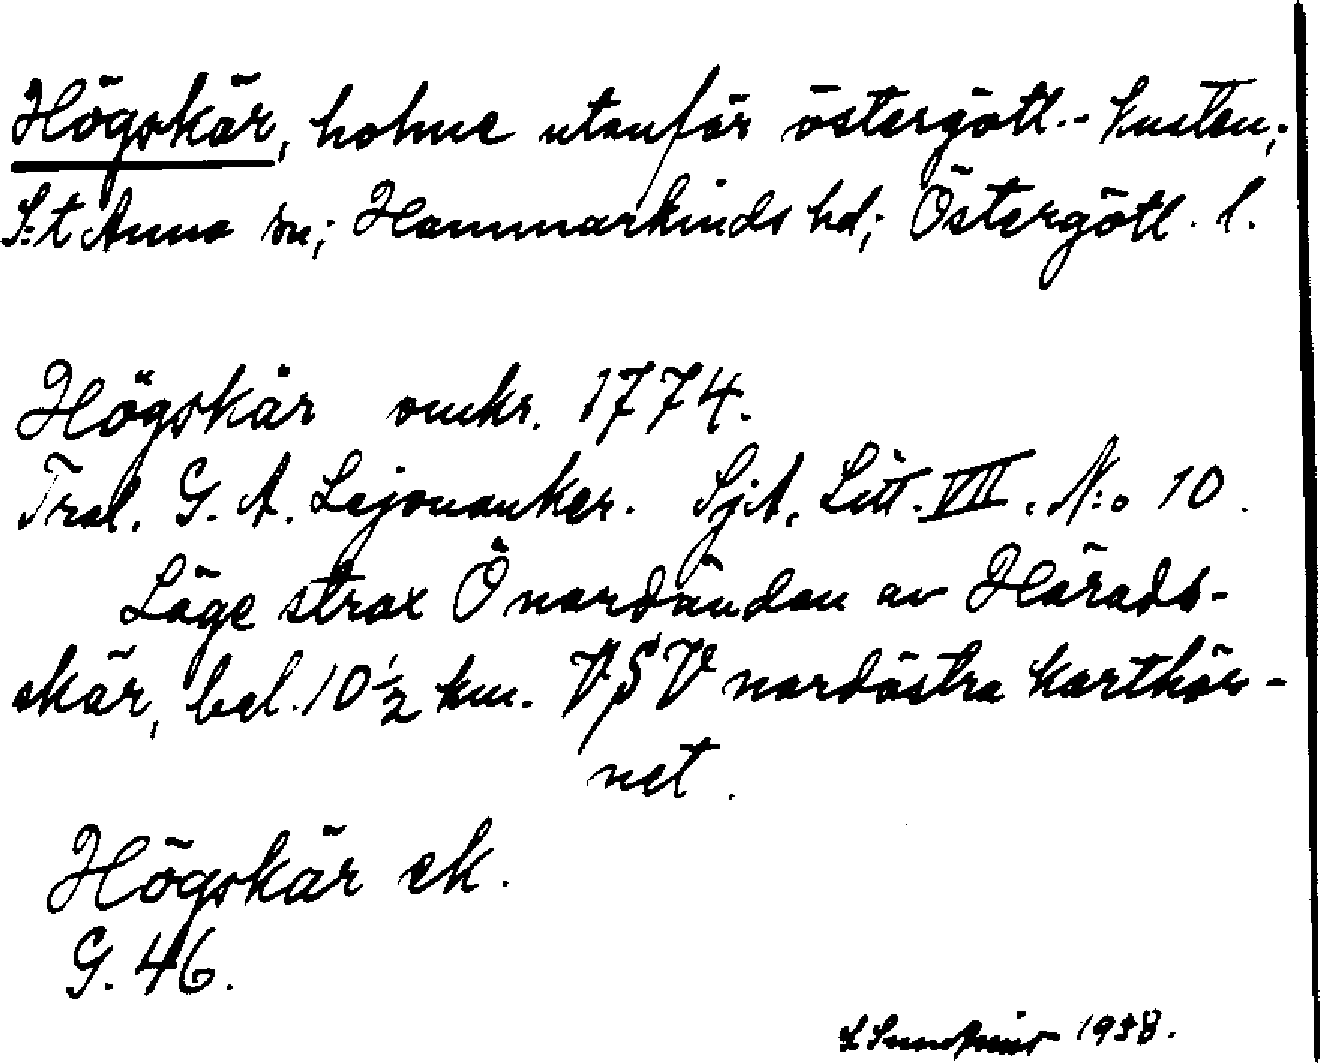 Högskär, holme utanför östergötl.- kusten;
S:t Anna sn; Hammarkinds hd; Östergötl. l.
Högskår omkr. 1774.
Tral. G. A. Lejonanker. Sjö. Litt. VII. N:o 10.
Läge strax Ö nordändan av Härads-
skär, bel. 10½ km. VSV nordöstra karthör-
net.
Högskär ek.
G. 46.
1938.